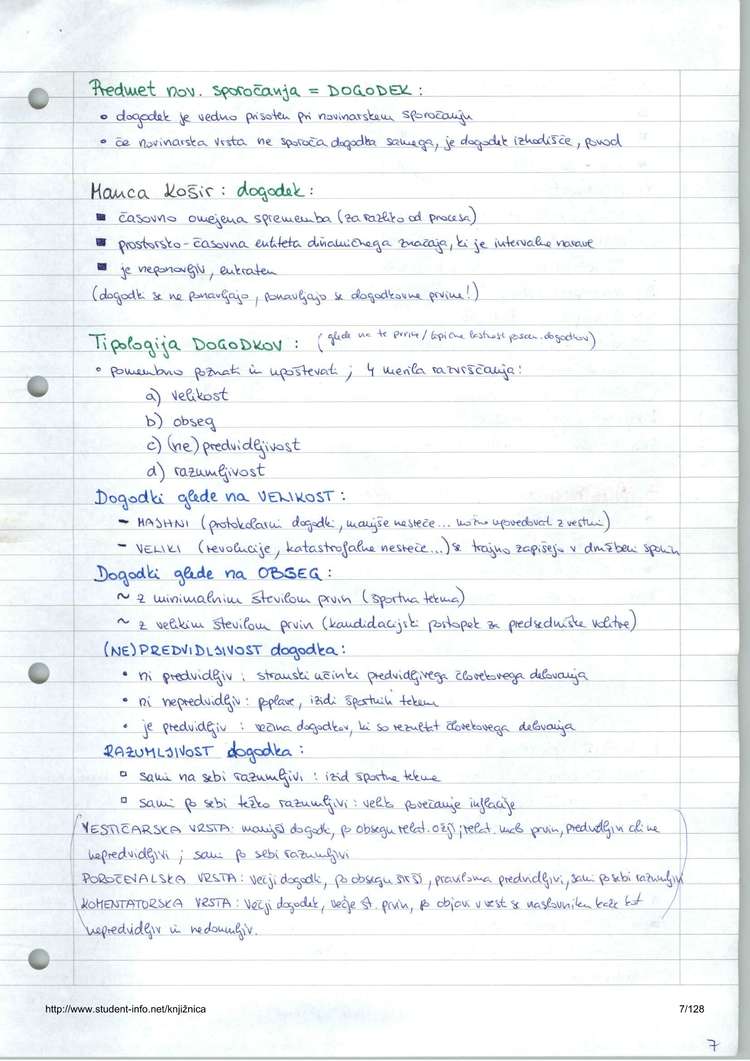 Predmet nov. sporočanja = DOGODEK :
• dogodek je vedno prisoten pri novinarskem sporočanju
• če novinarska vrsta ne sporoča dogodka samega, je dogodek izhodišče, povod
Manca Košir : dogodek :
■ časovno omejena sprememba (za razliko od procesa)
■ prostorsko-časovna entiteta dinamičnega značaja, ki je intervalne narave
■ je neponovljiv, enkraten
(dogodki se ne ponavljajo, ponavljajo se dogodkovne prvine!)
Tipologija DOGODKOV : (glede na te prvine / tipične lastnosti posam. dogodkov)
• pomembno poznati in upoštevati ; 4 merila razvrščanja:
a) velikost
b) obseg
c) (ne)predvidljivost
d) razumljivost
Dogodki glede na VELIKOST :
- MAJHNI (protokolarni dogodki, manjše nesreče... možno upovedovat z vestmi)
- VELIKI (revolucije, katastrofalne nesreče...) se trajno zapišejo v družbeni spomin
Dogodki glede na OBSEG :
~ z minimalnim številom prvin (športna tekma)
~ z velikim številom prvin (kandidacijski postopek za predsedniške volitve)
(NE)PREDVIDLJIVOST dogodka :
• ni predvidljiv : stranski učinki predvidljivega človekovega delovanja
• ni nepredvidljiv : poplave, izidi športnih tekem
• je predvidljiv : večina dogodkov, ki so rezultat človekovega delovanja
RAZUMLJIVOST dogodka :
▫ sami na sebi razumljivi : izid športne tekme
▫ sami po sebi težko razumljivi : veliko povečanje inflacije
VESTIČARSKA VRSTA : manjši dogodki, po obsegu relat. ožji ; relat. malo prvin, predvidljivi ali ne
nepredvidljivi ; sami po sebi razumljivi
POROČEVALSKA VRSTA : večji dogodki, po obsegu širši, praviloma predvidljivi, sami po sebi razumljivi
KOMENTATORSKA VRSTA : večji dogodek, večje št. prvin, po objavi v vest se naslovniku kaže kot
nepredvidljiv in nedoumljiv.
http://www.student-info.net/knjižnica
7/128
7